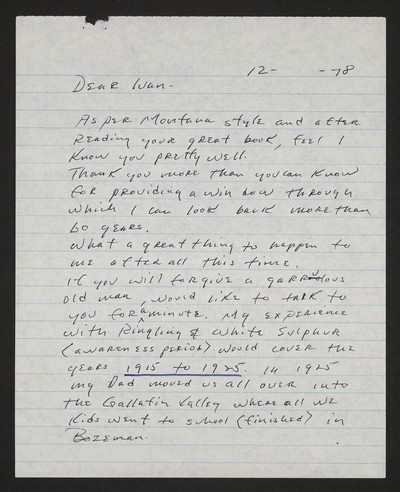 12- -78
Dear Ivan-
As per Montana style and after
reading your great book, feel I
know you pretty well.
Thank you more than you can know
for providing a window through
which I can look back more than
60 years.
What a great thing to happen to
me after all this time.
If you will forgive a garrulous
old man, would like to talk to
you for a minute. My experience
with Ringling & White Sulphur
(awareness period) would cover the
years 1915 to 1925. In 1925
my Dad moved us all over into
the Gallatin Valley where all we
kids went to school (finished) in
Bozeman.